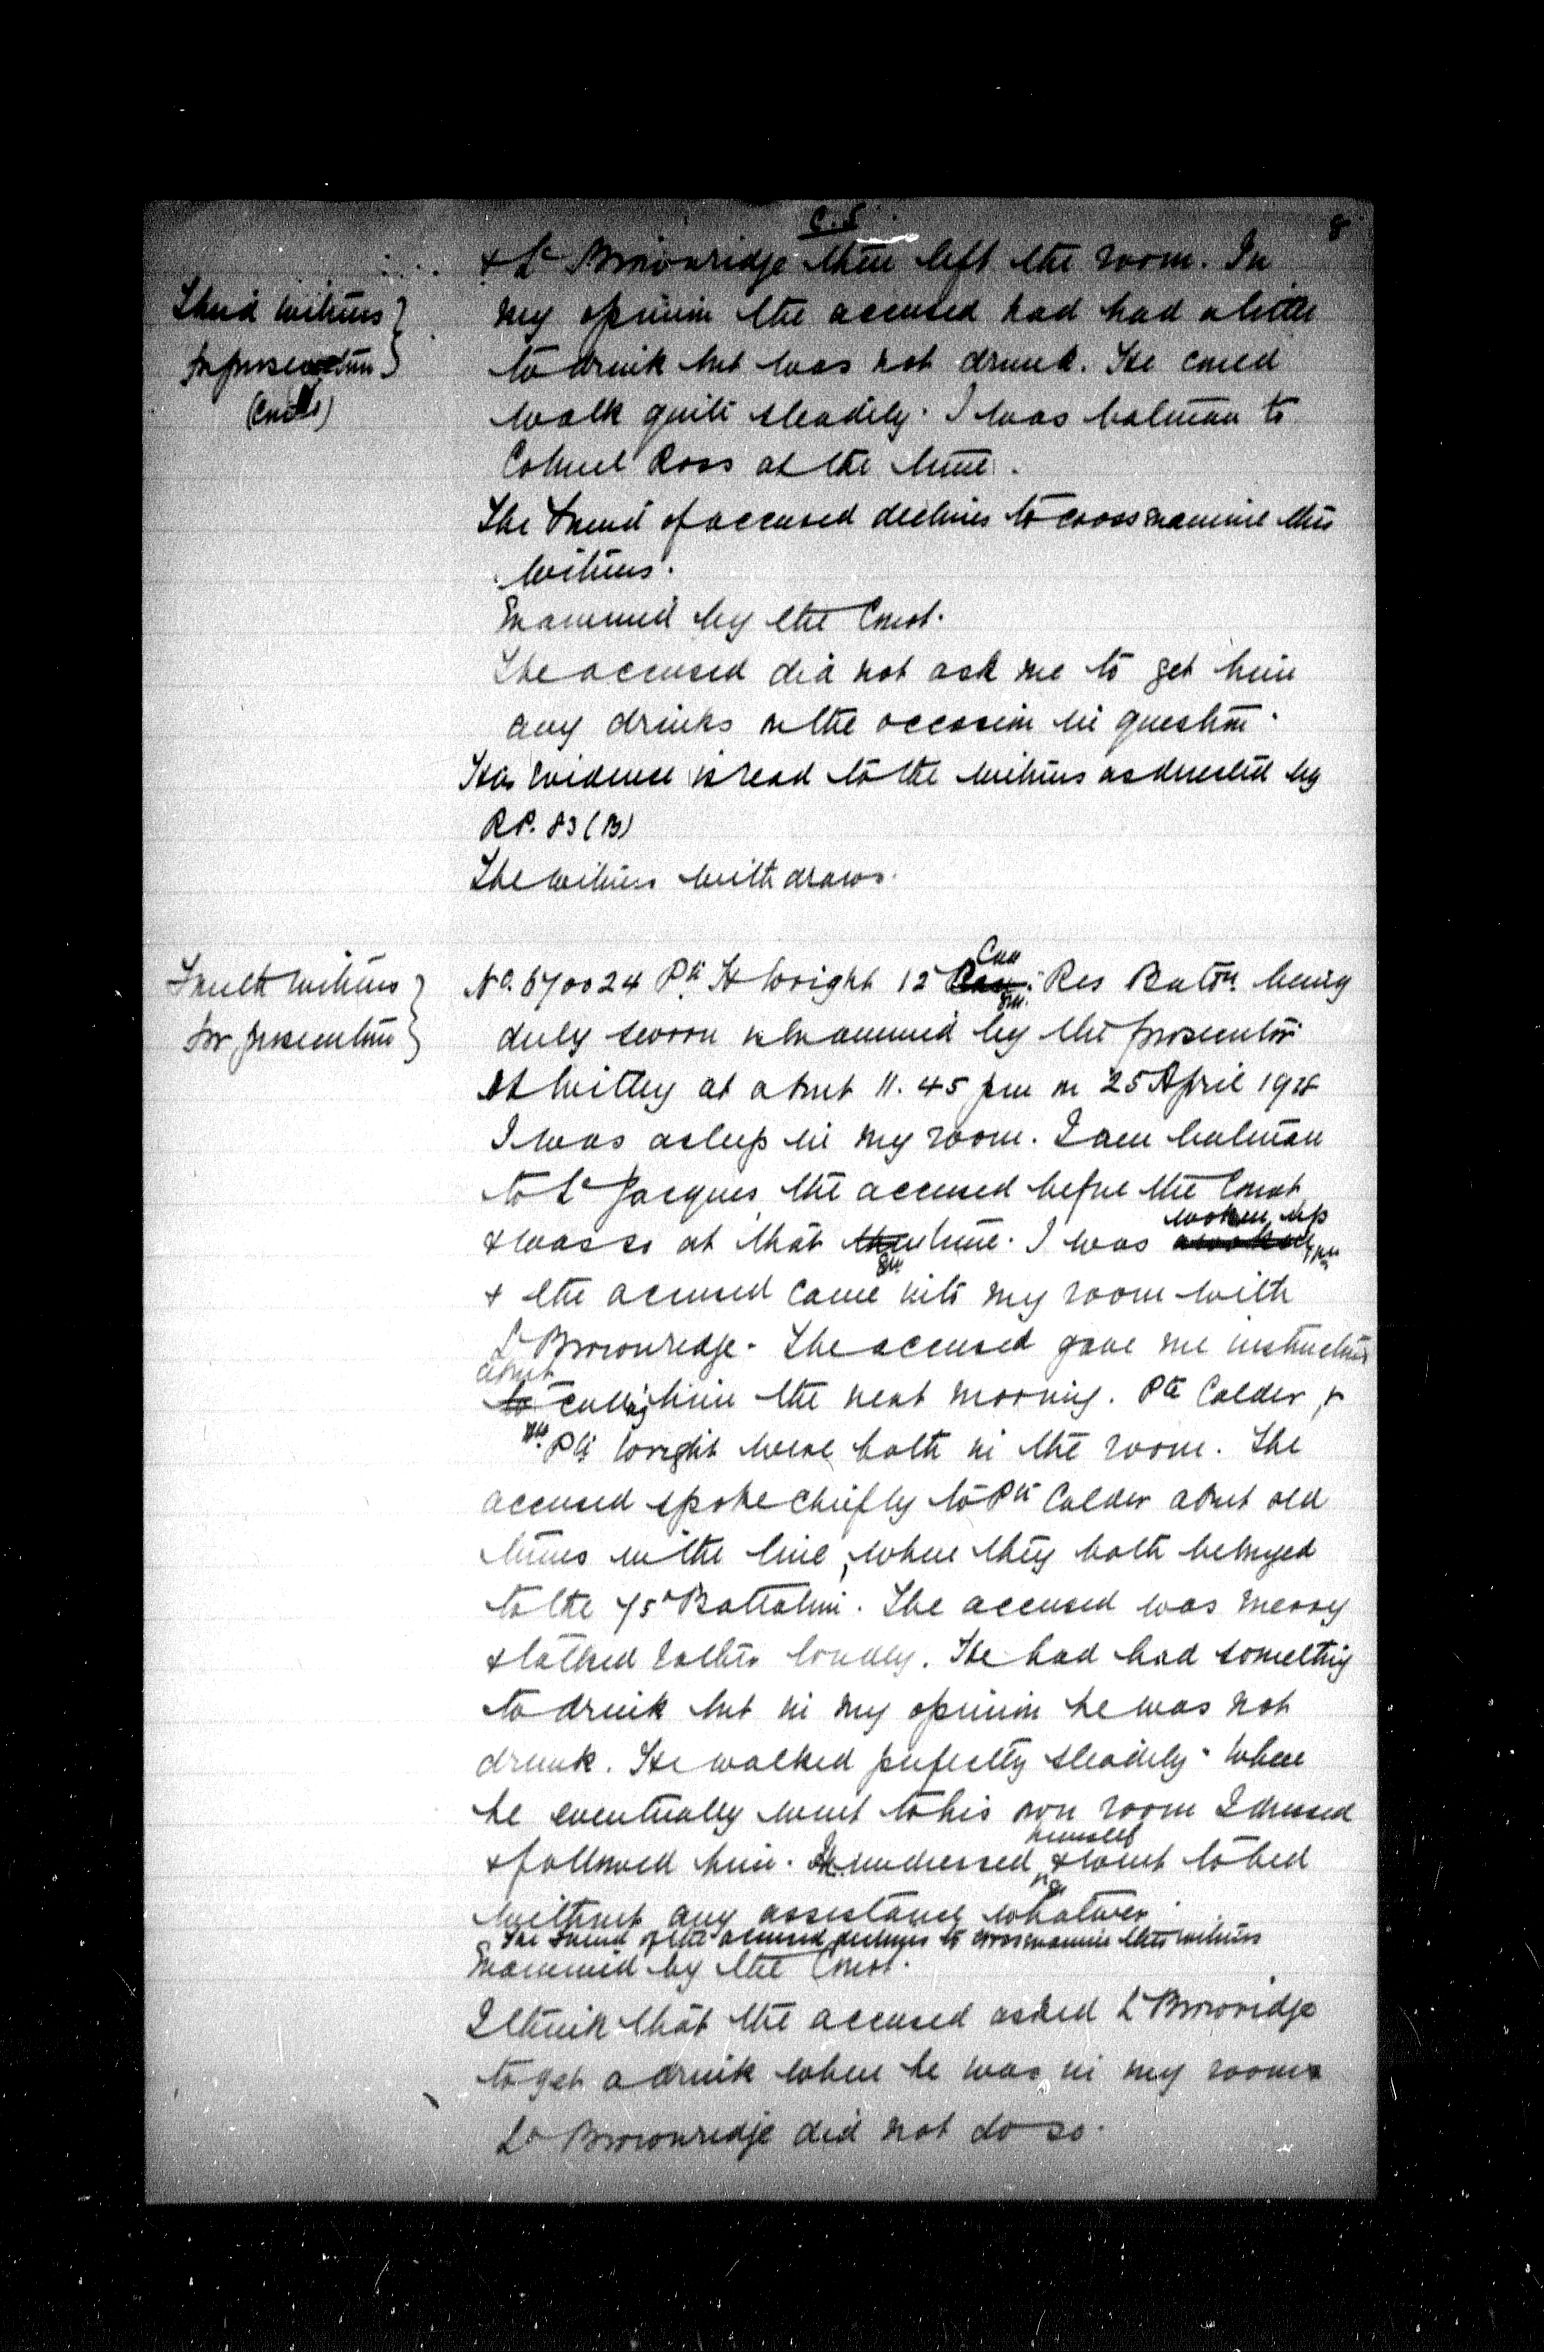 C.5
8
& Lt Brownridge then left the room. In
Third witness
my opinion the accused had had a little
for prosecution
to drink but was not drunk. He could
(Contd)
walk quite steadily. I was batman to
Colonel Ross at the time.
The Friend of accused declines to crossexamine this
witness.
Examined by the Court.
The accused did not ask me to get him
any drinks on the occasion in question.
His evidence is read to the witness as directed by
R.P. 83 (B)
The witness withdraws.
Fourth witness
No. 670024 Pte H Wright 12 Can Res Battn. being
for prosecution
duly sworn is examined by the prosecutor
At Witley at about 11.45 pm on 25 April 1918
I was asleep in my room. I am batman
to Lt Jacques, the accused before the Court
& was so at that time. I was woken up
& the accused came into my room with
Lt Brownridge. The accused gave me instructions
about calling him the next morning. Pte Calder, &
Pte Wright were both in the room. The
accused spoke chiefly to Pte Calder about old
times in the line, where they both belonged
to the 75th Battalion. The accused was merry
& talked rather loudly. He had had something
to drink but in my opinion he was not
drunk. He walked perfectly steadily. When
he eventually went to his own room I dressed
& followed him. He undressed himself & went to bed
without any assistance whatever.
The Friend of the accused declines to crossexamine this witness
Examined by the Court.
I think that the accused asked Lt Brownridge
to get a drink when he was in my room
Lt Brownridge did not do so.